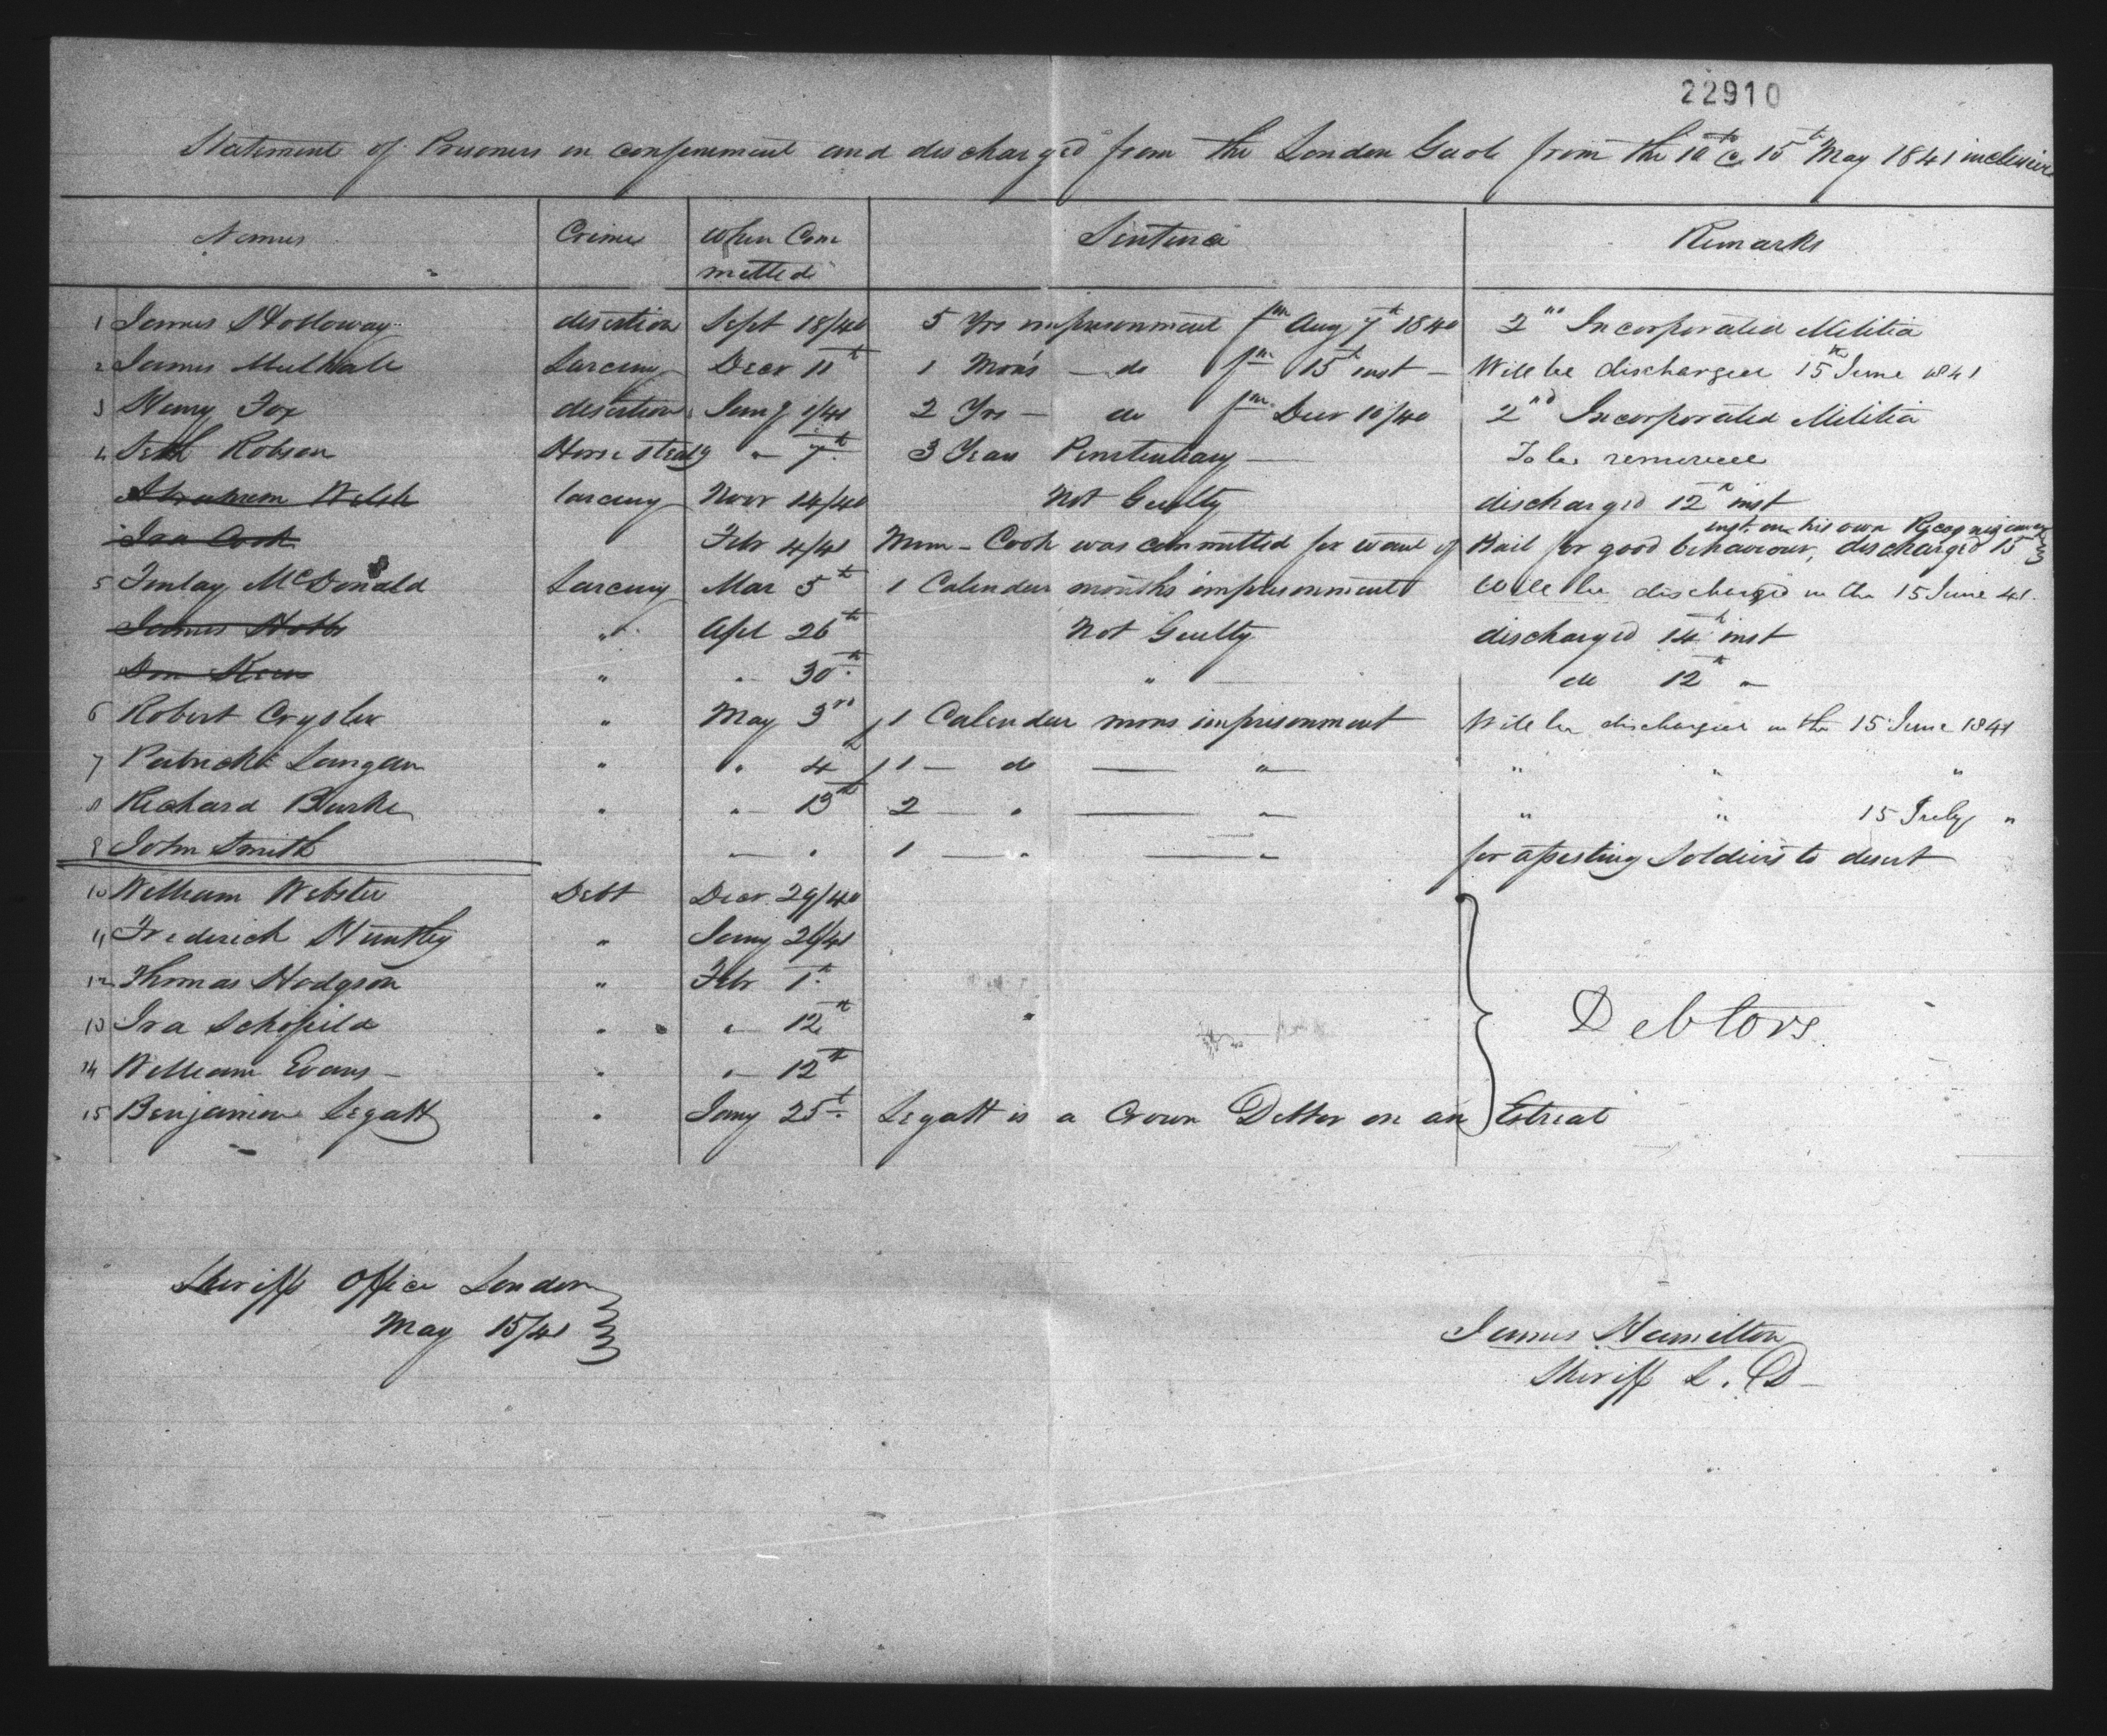 22910
Statement of Prisoners in confinement and discharged from the London Gaol from the 10th to 15th May 1841 inclusive
Names Crime When Com Sentence Remarks
mitted
1 James Holloway desertion Sept 18/40 5 Yrs imprisonment fm Aug 7th 1840 2nd Incorporated Militia
2 James Mulhall Larceny Decr 11th 1 Mons — do fm 15th inst — Will be discharged 15th June 1841
3 Henry Fox desertion Jany 1/41 2 Yrs — do fm Decr 10/40 2nd Incorporated Militia
4 Seth Robson Horse stealg " 7th 3 Years Penitentiary — To be removed
Abraham Welsh larceny Novr 14/40 Not Guilty discharged 12th inst
inst. on his own Recognizance
Ira Cook Febr 4/41 Mem – Cook was committed for want of Bail for good behaviour, discharged 15th
5 Finlay McDonald Larceny Mar 5th 1 Calendar months imprisonment Will be discharged on the 15 June 41.
James Hobbs " Apl 26th Not Guilty discharged 14th inst
" " 30th " — do 12th "
6 Robert Crysler " May 3rd 1 Calendar mons imprisonment Will be discharged on the 15 June 1841
7 Patrick Langan " " 4th 1 — do — " " " "
8 Richard Burke " " 13th 2 — " — " " " 15 July "
9 John Smith " " 1 — " — " for assisting Soldiers to desert
10 William Webster Debt Decr 29/40
11 Frederick Huntley " Jany 26/41
12 Thomas Hodgson " Feb 1st
13 Ira Schofield " " 12th " Debtors
14 William Evans — " " 12th
15 Benjamin Legatt " Jany 25th Legatt is a Crown Debtor on an Estreat
Sheriffs Office London
May 15/41
James Hamilton
Sheriff L. D